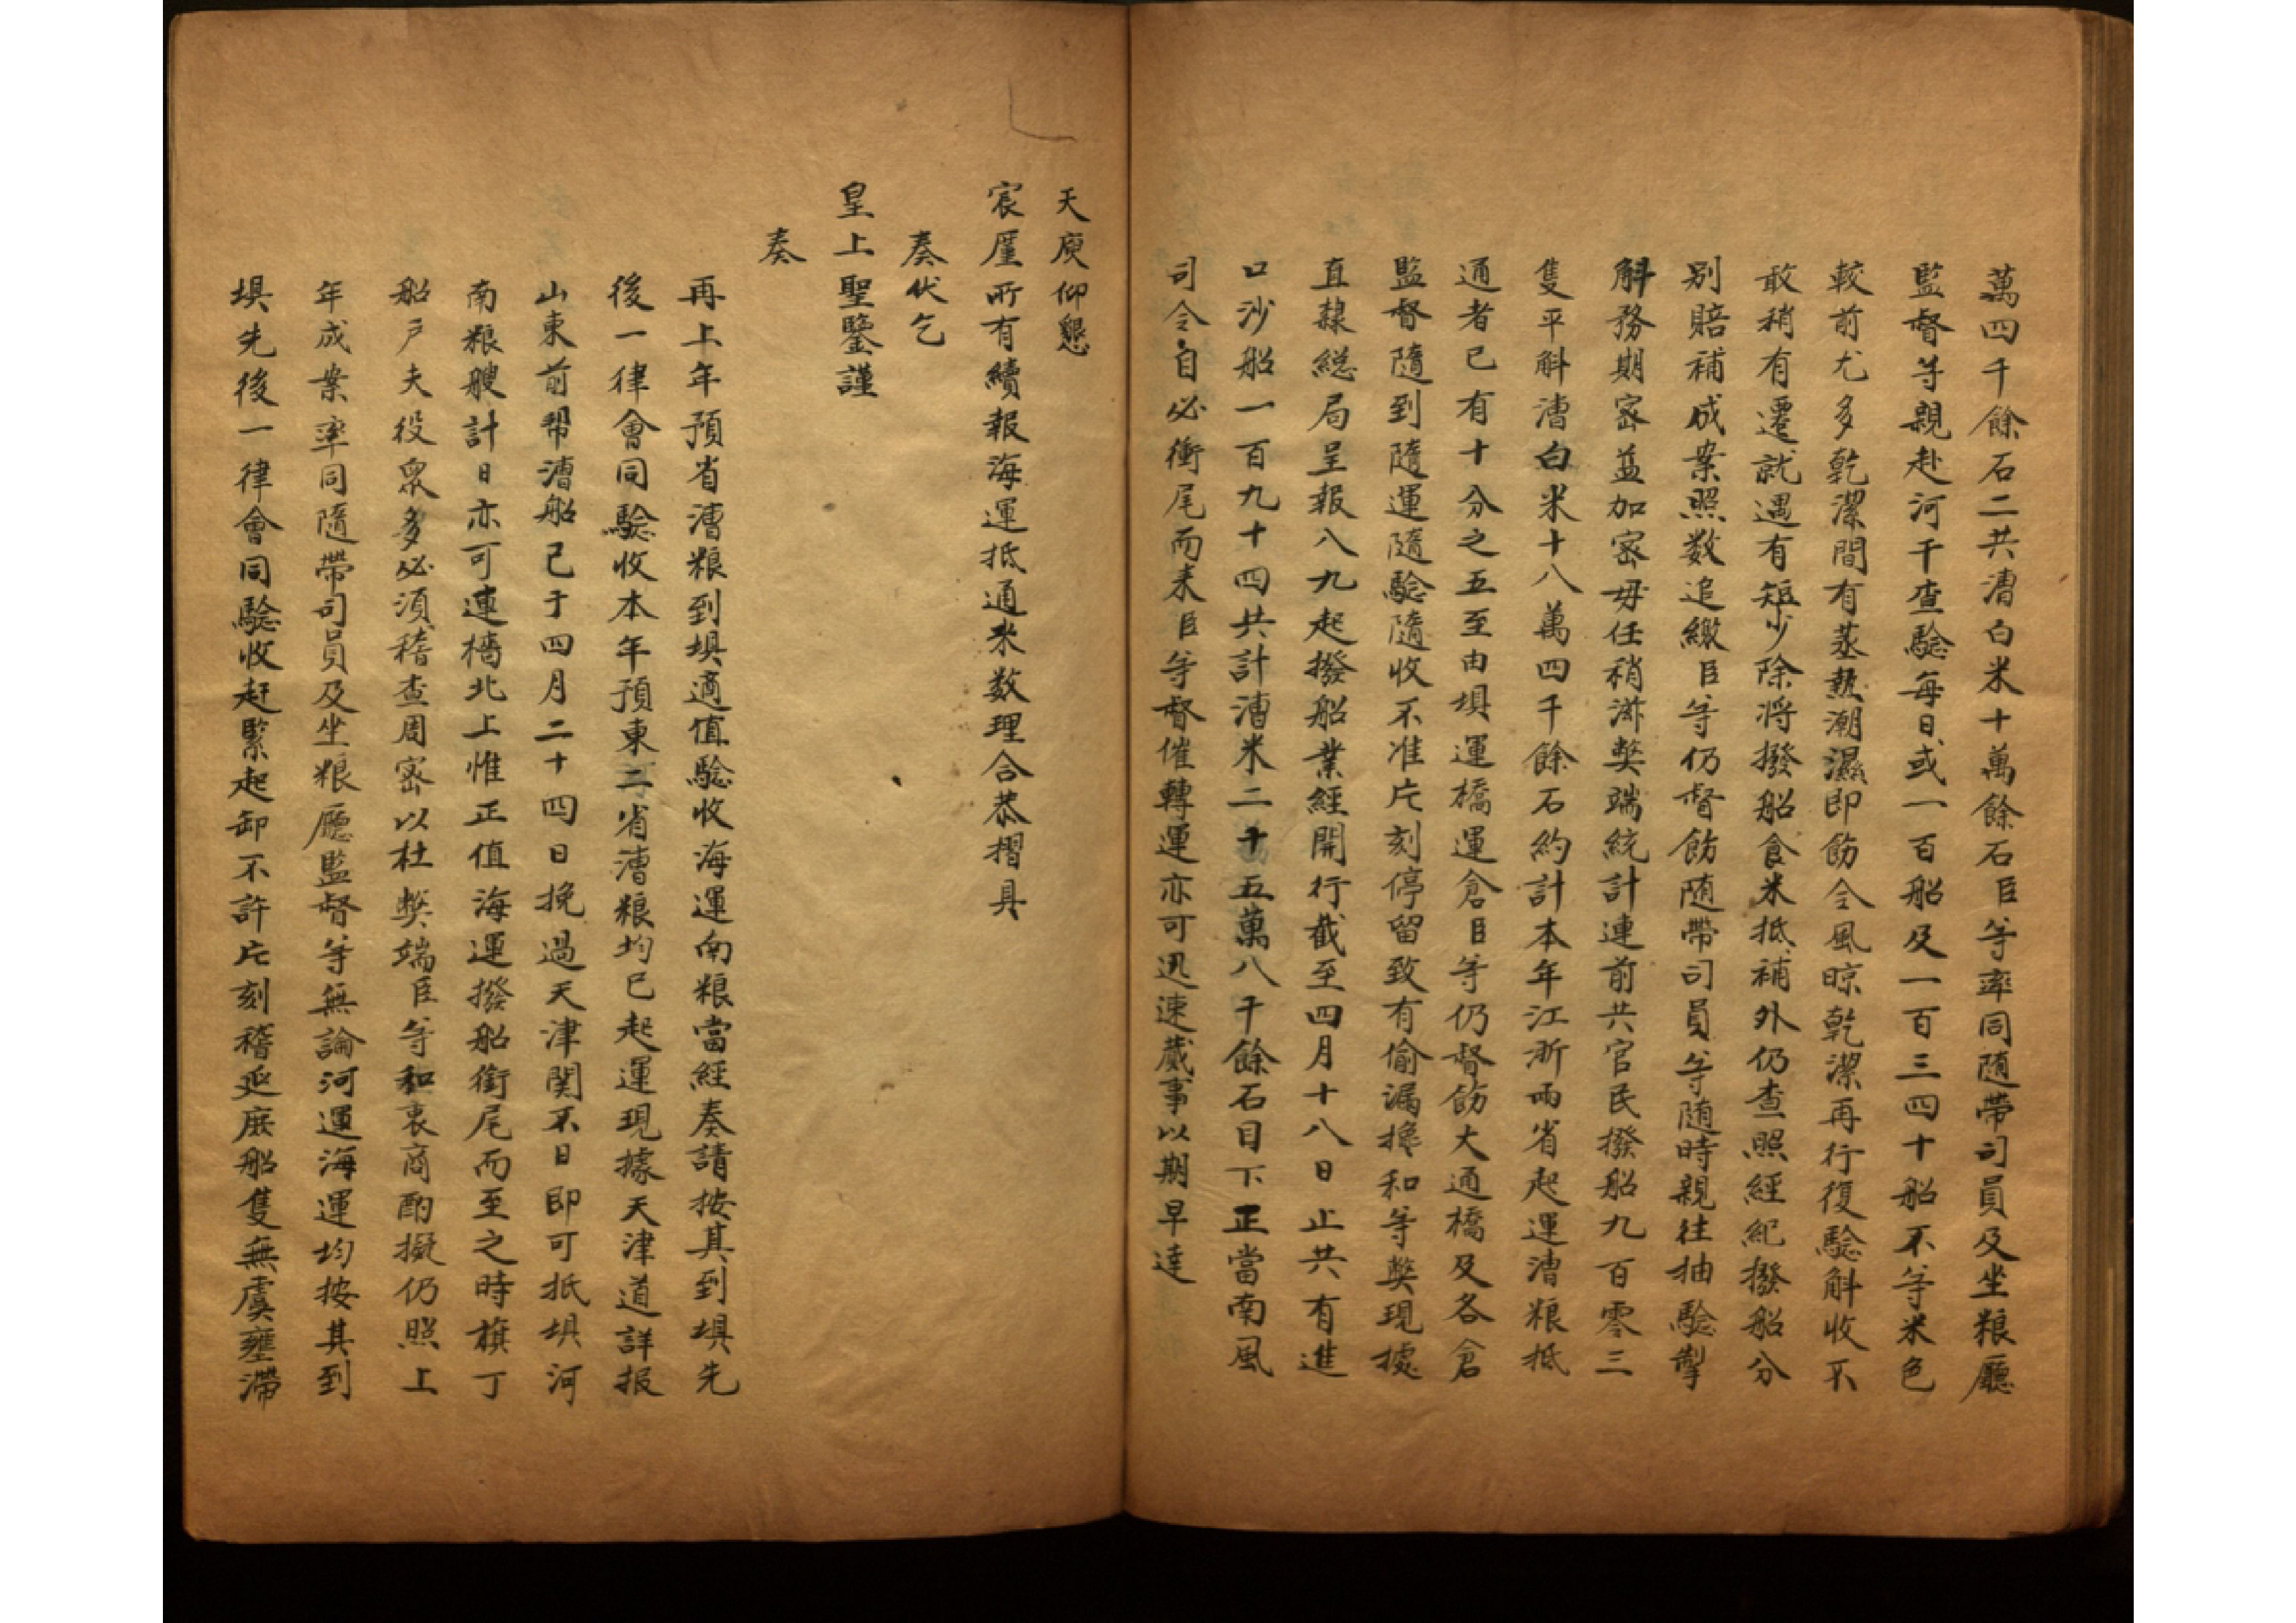 萬四千餘石二共漕白米十萬餘石臣等率同随帶司員及坐粮廳
監督等親赴河干查驗每日或一百船及一百三四十船不等米色
較前尤多乾潔間有蒸熱潮濕即飭令風晾乾潔再行復驗斛收不
敢稍有遷就遇有短少除将撥船食米抵補外仍查照經紀撥船分
別賠補成案照数追繳臣等仍督飭随帶司員等随時親往抽驗掣
斛務期密益加密毋任稍滋獘端統計連前共官民撥船九百零三
隻平斛漕白米十八萬四千餘石約計本年江浙兩省起運漕粮抵
通者已有十分之五至由埧運橋運倉臣等仍督飭大通橋及各倉
監督隨到隨運隨驗隨收不准片刻停留致有偷漏攙和等獘現據
直隸総局呈報八九起撥船業經開行截至四月十八日止共有進
口沙船一百九十四共計漕米二十五萬八千餘石目下正當南風
司令自必衝尾而来臣等督催轉運亦可迅速蕆事以期早達
天庾仰懇
宸厪所有續報海運抵通米数理合恭摺具
奏伏乞
皇上聖鑒謹
奏
再上年預省漕粮到埧適值驗收海運南粮當經奏請按其到埧先
後一律會同驗收本年預東二省漕粮均已起運現據天津道詳报
山東前帮漕船已于四月二十四日挽過天津関不日即可抵埧河
南粮艘計日亦可連檣北上惟正值海運撥船銜尾而至之時旗丁
船戶夫役衆多必須稽查周密以杜獘端臣等和衷商酌擬仍照上
年成案率同隨帶司員及坐粮廳監督等無論河運海運均按其到
埧先後一律會同驗收赶緊起卸不許片刻稽延庶船隻無虞壅滯